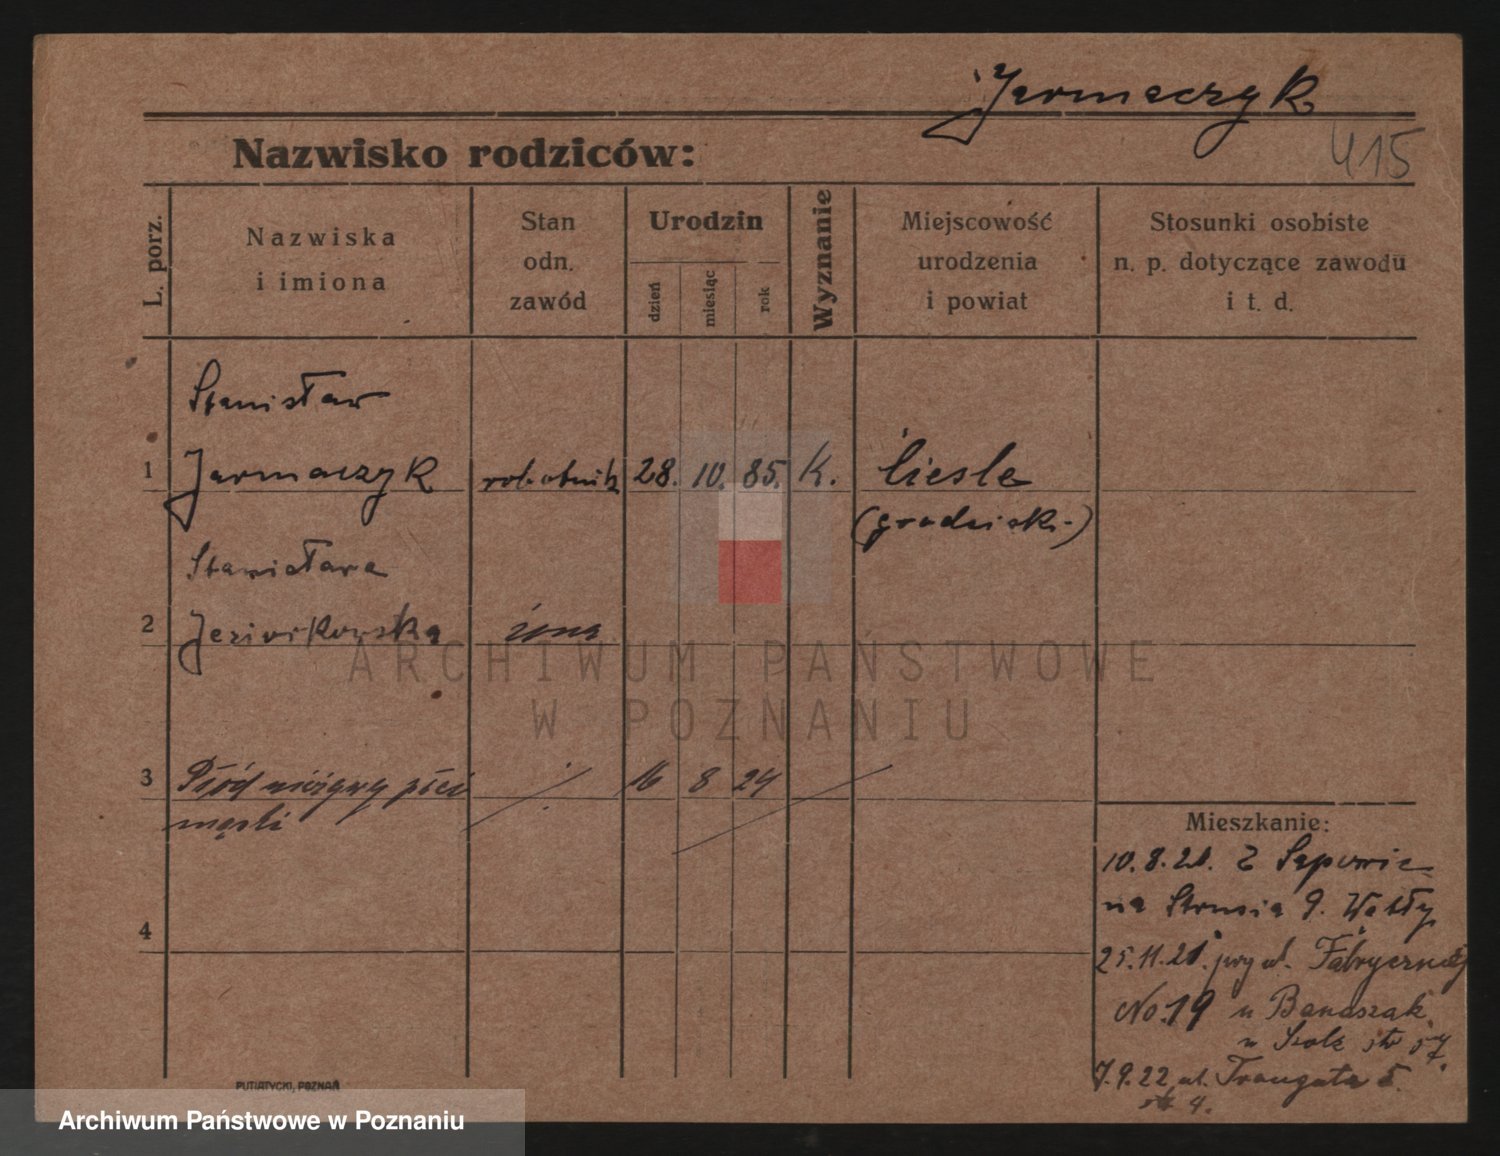 Jarmaczyk
415
Nazwisko rodziców:
L. porz.
Nazwiska
i imiona
Stan
odn.
zawód
Urodzin
dzień
miesiąc
rok
Wyznanie
Miejscowość
urodzenia
i powiat
Stosunki osobiste
n. p. dotyczące zawodu
i t. d.
Stanisław
1 Jarmaczyk robotnik 28. 10. 85. K. Ciesle
(grodzisk.)
Stanisława
2 żona
3 Płód nieżywy płci 16 8 24
męski
4
Mieszkanie:
10.8.21. Z
na Strusia 9. Wałły
25.11.21. przy ul. Fabrycznej
No. 19 u Banaszak
u
7.9.22 ul. Trauguta 5.
4.
PUTIATYCKI, POZNAŃ
ARCHIWUM PAŃSTWOWE
W POZNANIU
Archiwum Państwowe w Poznaniu